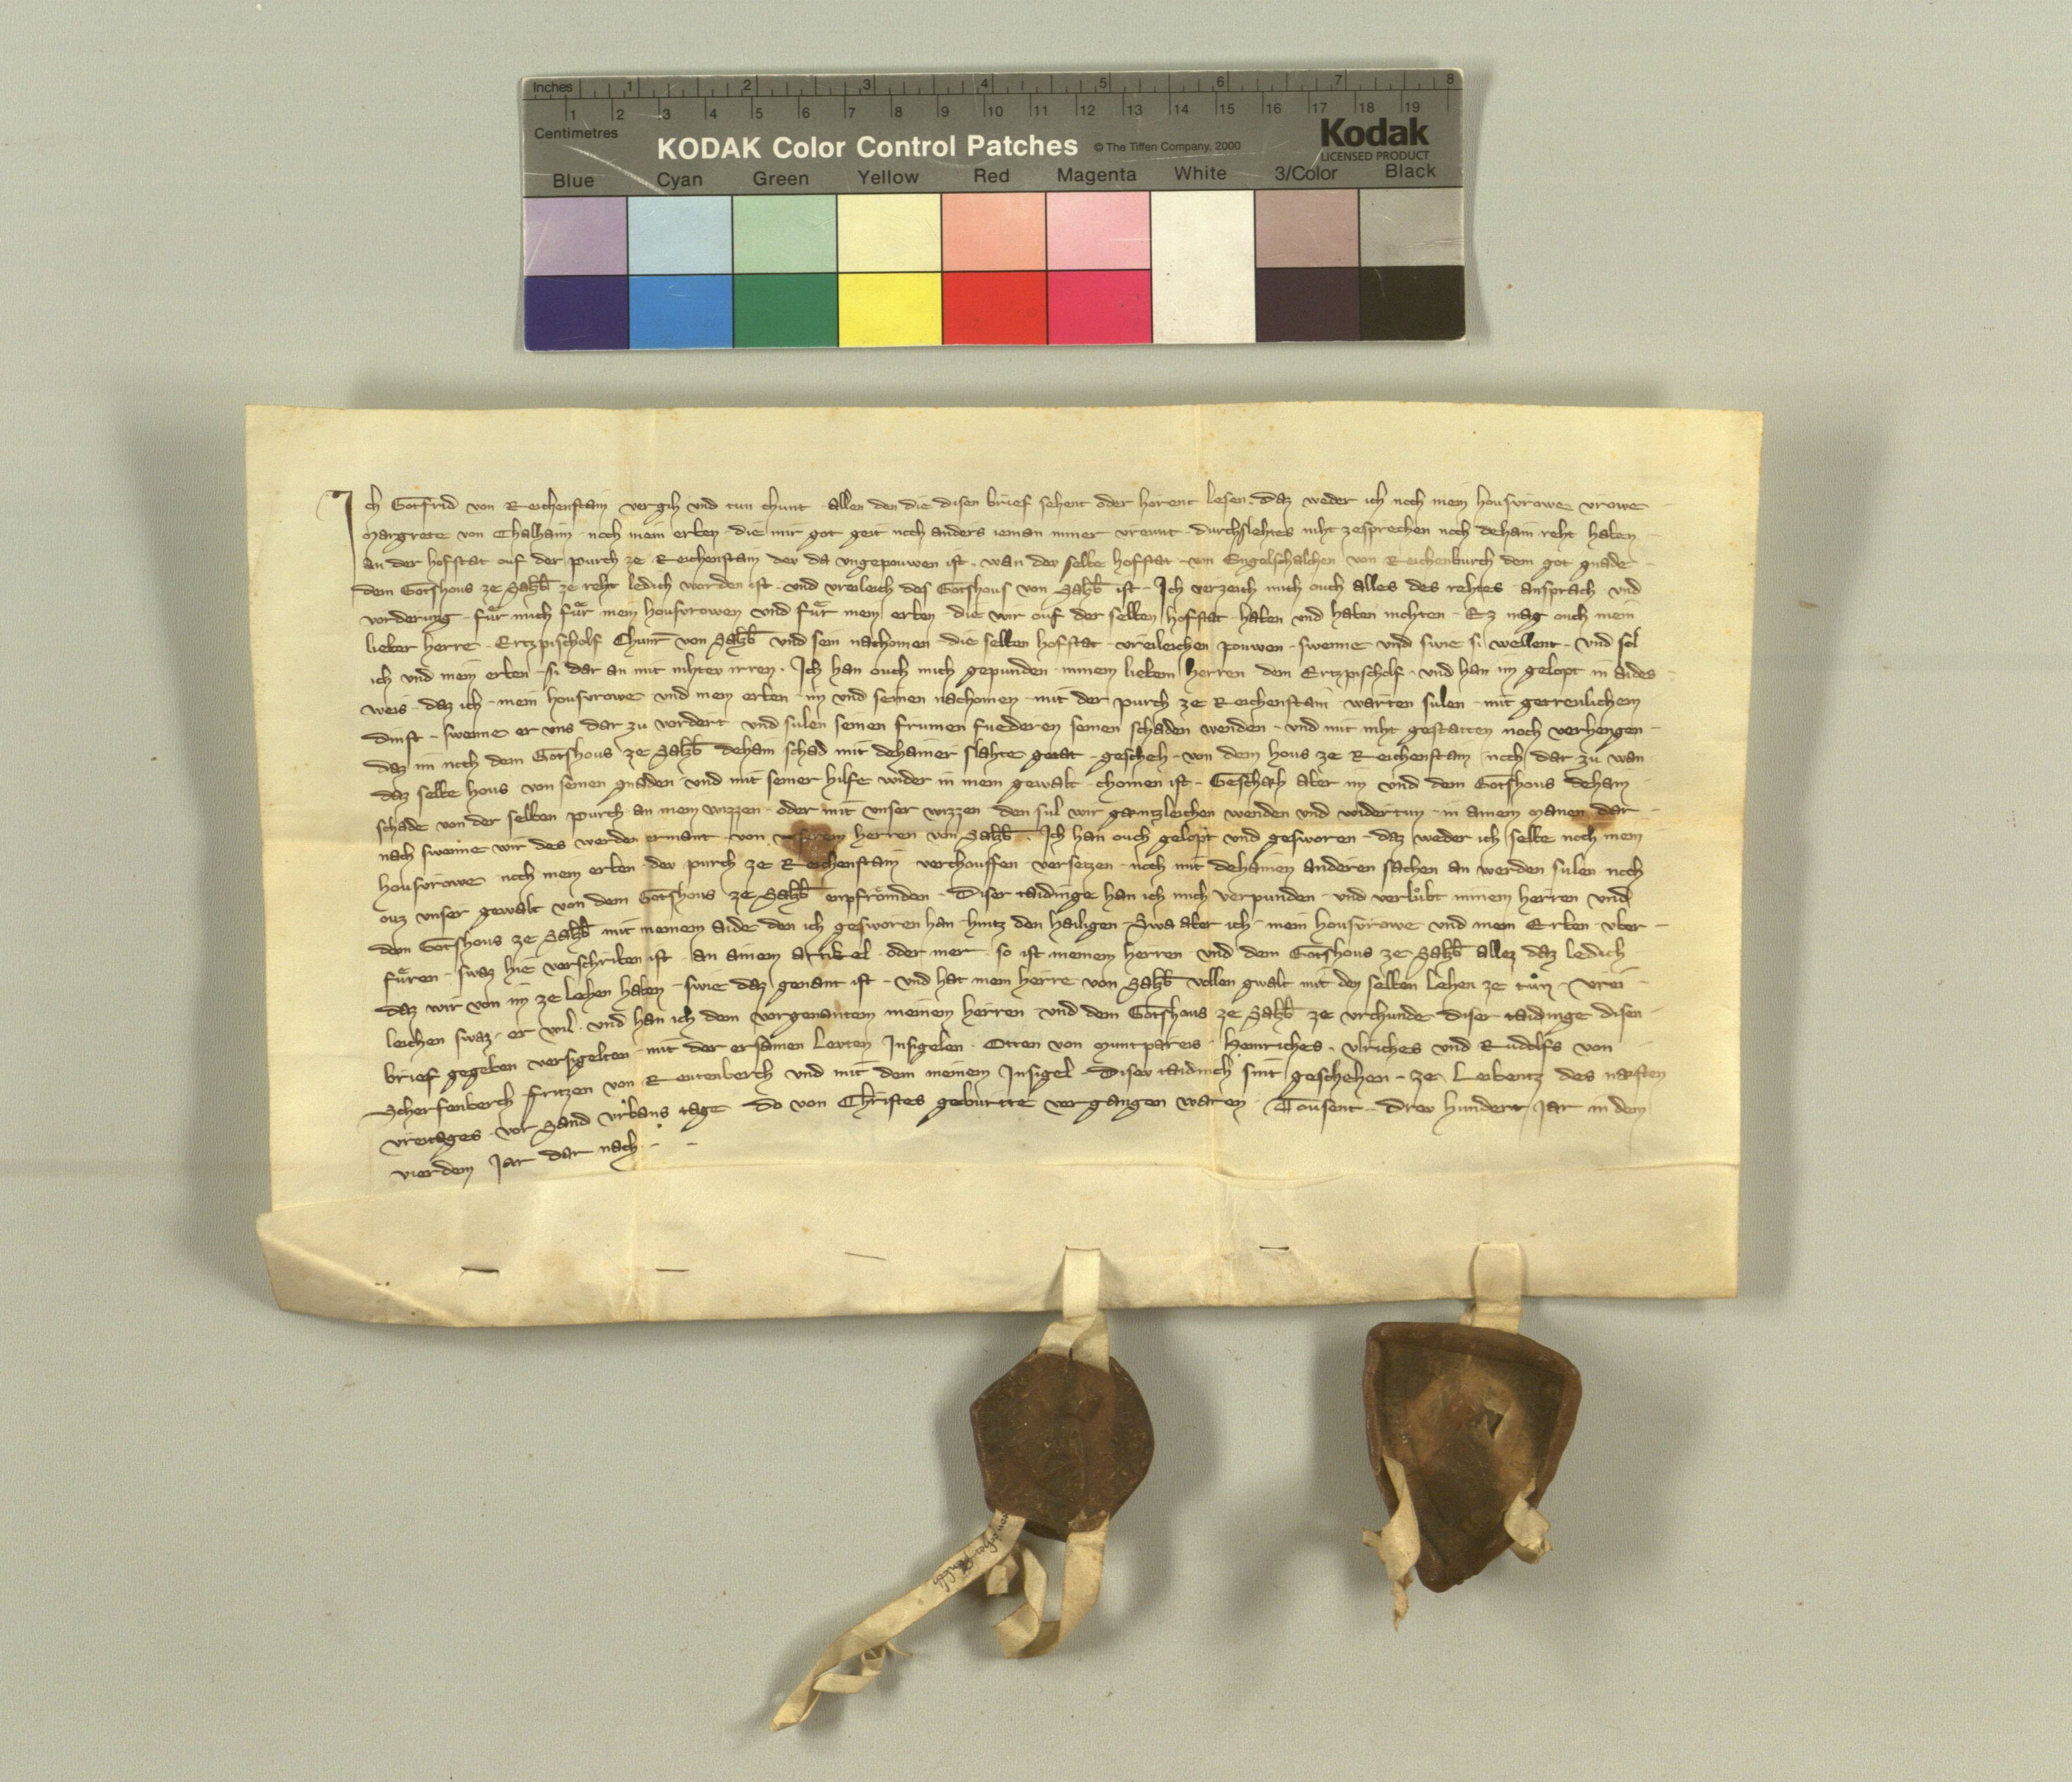 Inches 1 2 3 4 5 6 7 8
1 2 3 4 5 6 7 8 9 10 11 12 13 14 15 16 17 18 19
Centimetres
KODAK Color Control Patches © The Tiffen Company, 2000 Kodak
LICENSED PRODUCT
Blue Cyan Green Yellow Red Magenta White 3/Color Black
Ich Gotfrid von Reichenstain vergih und tun chunt allen den die disen brief sehent oder horent lesen. daz weder ich noch mein housvrowe vrowe
Margrete von Chalhaim noch mein erben die mir got geit noch anders ieman miner vreunt durchslehtes niht zesprechen noch dehain reht haben
an der hofstat ouf der purch ze Reichenstain der da ungepouwen ist. wan der selbe hofstat von Engelschalchen von Reichenburch dem got gnade
dem Gotshous ze Salzb̄ ze reht ledich worden ist. und vreileich des Gotshous von Salzb̄ ist. Ich verzeich mich ouch alles des rehtes ansprach und
vorderung fuͤr mich fuͤr mein housvrowen und fuͤr mein erben die wir ouf der selben hofstat haben und haben mohten. Ez mag ouch mein
lieber herre Ertzpischolf Chunr̄ von Salzb̄ und sein nachomen die selben hofstat vreileichen pouwen swenne und swie si wellent. Und sol
ich und mein erben si dar an mit nihtev irren. Ich han ouch mich gepunden minem liebem herren dem Ertzpischolf und han im gelopt in aides
weis daz ich mein housvrowe und mein erben im und seinen nachomen mit der purch ze Reichenstain warten sulen mit getreulichem
dinst swenne er uns dar zu vordert und sulen seinen frumen fuederen seinen schaden wenden und mit niht gestatten noch verhengen
daz im noch dem Gotshous ze Salzb̄ dehain schad mit dehainer slahte geraet gescheh von dem hous ze Reichenstain noch dar zu wan
daz selbe hous von seinen gnaden und mit seiner hilfe wider in mein gewalt chomen ist. Geschaeh aber im und dem Gotshous dehain
schade von der selben purch an mein wizzen oder mit unser wizzen den sul wir gaentzleichen wenden und widertun in ainem manen dar
nach swenne wir des werden ermant von unserem herren von Salzb̄. Ich han ouch gelopt und gesworen daz weder ich selbe noch mein
housvrowe noch mein erben der purch ze Reichenstain verchouffen versetzen noch mit dehainen anderen sachen an werden sulen noch
ouz unser gewalt von dem Gotshous ze Salzb̄ enpfroͤmden. Diser taidinge han ich mich verpunden und verlubt minem herren und
dem Gotshous ze Salzb̄ mit meinem aide den ich gesworen han hintz den hailigen. Swa aber ich mein housvrowe und mein Erben uber
fuͤren swaz hie verschriben ist an ainem artikel oder mer so ist meinem herren und dem Gotshous ze Salzb̄ allez daz ledich
daz wir von im ze lehen haben swie daz genant ist und hat mein herre von Salzb̄ vollen gwalt mit den selben lehen ze tuͦn vrei
leichen swaz er wil. und han ich dem vorgenantem meinem herren und dem Gotshous ze Salzb̄ ze urchunde diser taidinge disen
brief gegeben versigelten mit der ersamen Levten Insigelen. Otten von Muntpareis. Heinriches. Ulriches und Rudolfs von
Scherfenberch Fritzen von Reutenberch und mit dem meinem Insigel. Disev taidinch sint geschehen ze Leibentz des naesten
vreitages vor Sand Urbans tage do von Christes geburtte vergangen waren Tousent drev hundert Jar in dem
vierdem Jar dar nach.